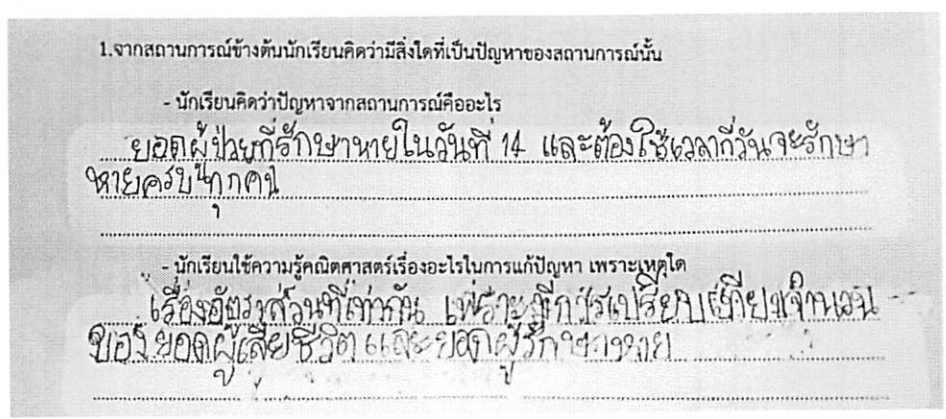 1.จากสถานการณ์ข้างต้นนักเรียนคิดว่ามีสิ่งใดที่เป็นปัญหาของสถานการณ์นั้น
- นักเรียนคิดว่าปัญหาจากสถานการณ์คืออะไร
ยอดผู้ป่วยที่รักษาหายในวันที่ 14 และต้องใช้เวลากี่วันจะรักษา
หายครบทุกคน
- นักเรียนใช้ความรู้คณิตศาสตร์เรื่องอะไรในการแก้ปัญหา เพราะเหตุใด
เรื่องอัตราส่วนที่เท่ากัน เพราะมีการเปรียบเทียบจำนวน
ของยอดผู้เสียชีวิตและยอดผู้รักษาหาย